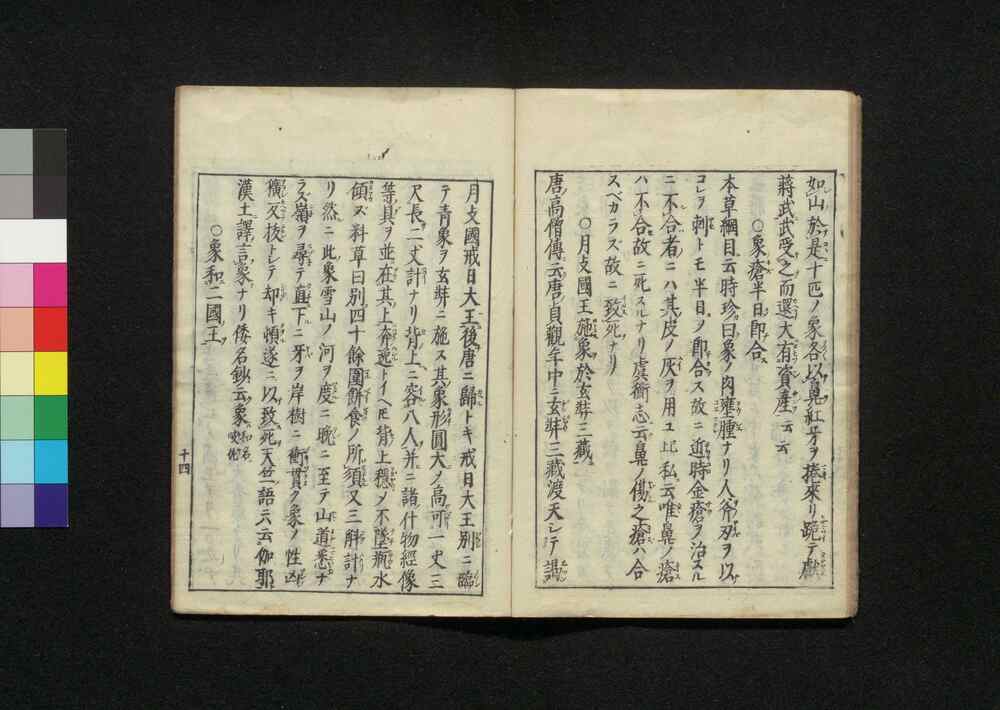 如山於是十匹ノ象各以鼻紅牙ヲ捲來リ跪テ獻
蔣武武受之而還大有資産云云
○象瘡半日即合
本草綱目云時珍曰象ノ肉壅腫ナリ人斧刃ヲ以
コレヲ刺トモ半日ノ即合ス故ニ近時金瘡ヲ治スル
ニ不合者ニハ其皮ノ灰ヲ用ユ比私云唯鼻ノ瘡
ハ不合故ニ死スルナリ虞衡志云鼻ノ傷之瘡ハ合
スベカラズ故ニ致死ナリ
○月支國王施象於玄弉三藏
唐高僧傳云唐貞觀年中ニ玄弉三藏渡天シテ謁
月支國戒日大王後唐ニ歸トキ戒日大王別ニ臨
テ青象ヲ玄弉ニ施ス其象形圓大ノ高可一丈三
尺長二丈計ナリ背上ニ容八人并ニ諸什物經像
等具ヲ並在其上奔逸トイヘ𪜈背上穩ノ不墜瓶水
傾ズ料草日別四十餘圍餅食ノ所須又三斛計ナ
リ然ニ此象雪山ノ河ヲ度ニ晩ニ至テ山道悉ナ
ラズ嶺ヲ尋テ直下ニ牙ヲ岸樹ニ衝貫ク象ノ性凶
獷反抜トシテ却キ頓遂ニ以致死天竺語六云伽耶
漢土譯言象ナリ倭名鈔云象
○象和二國王
十四